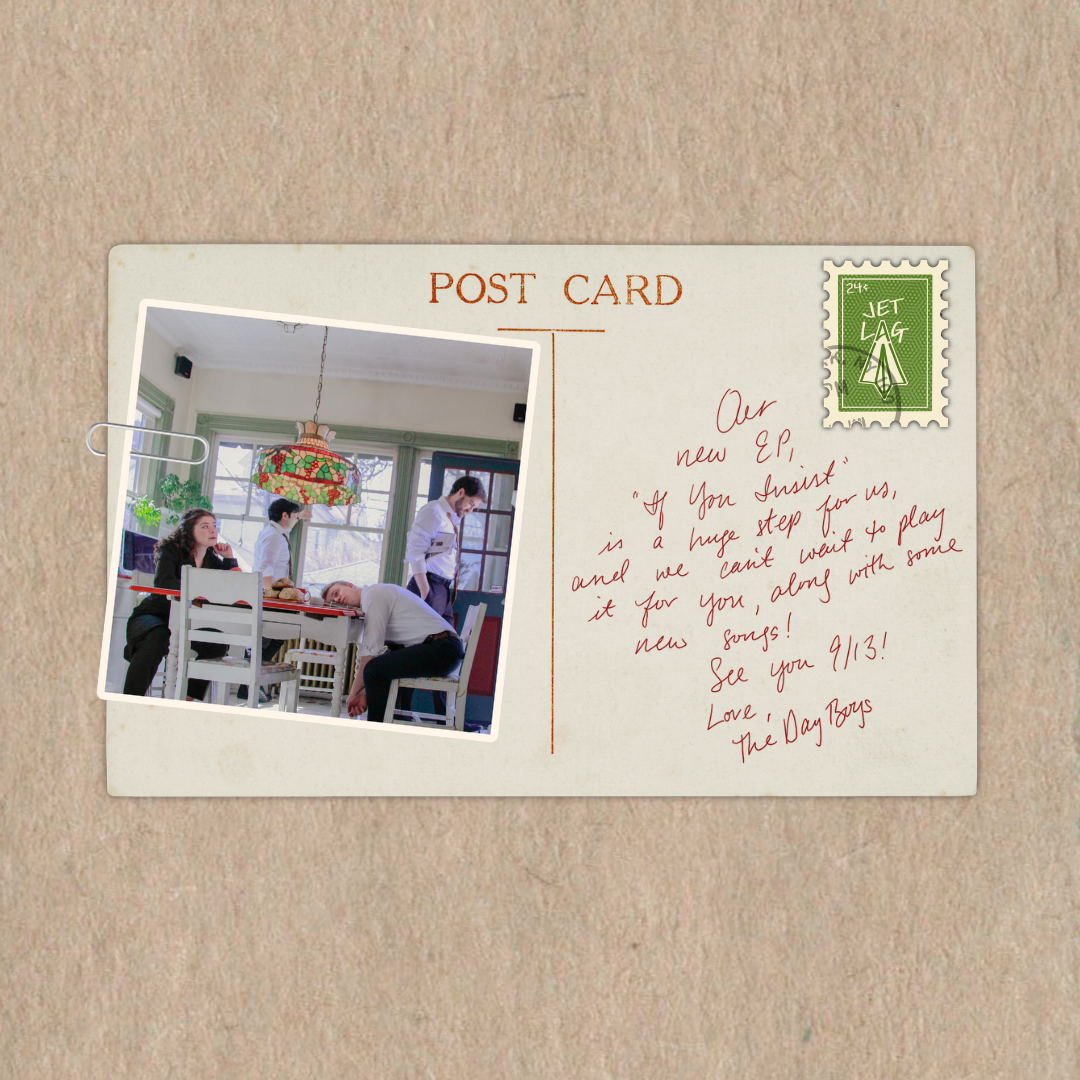 POST CARD
24¢
JET
LAG
Our
new EP,
"If You Insist"
is a huge step for us,
and we can't wait to play
it for you, along with some
new songs!
See you 9/13!
Love,
The Day Boys